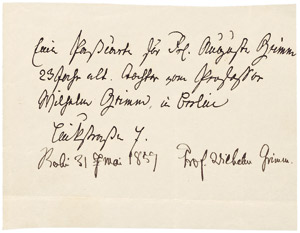 Eine Paßkarte für Frl. Auguste Grimm
23 Jahr alt. Tochter vom Professor
Wilhelm Grimm, in Berlin
Linkstraße 7.
31 Mai 1857 Prof. Wilhelm Grimm.